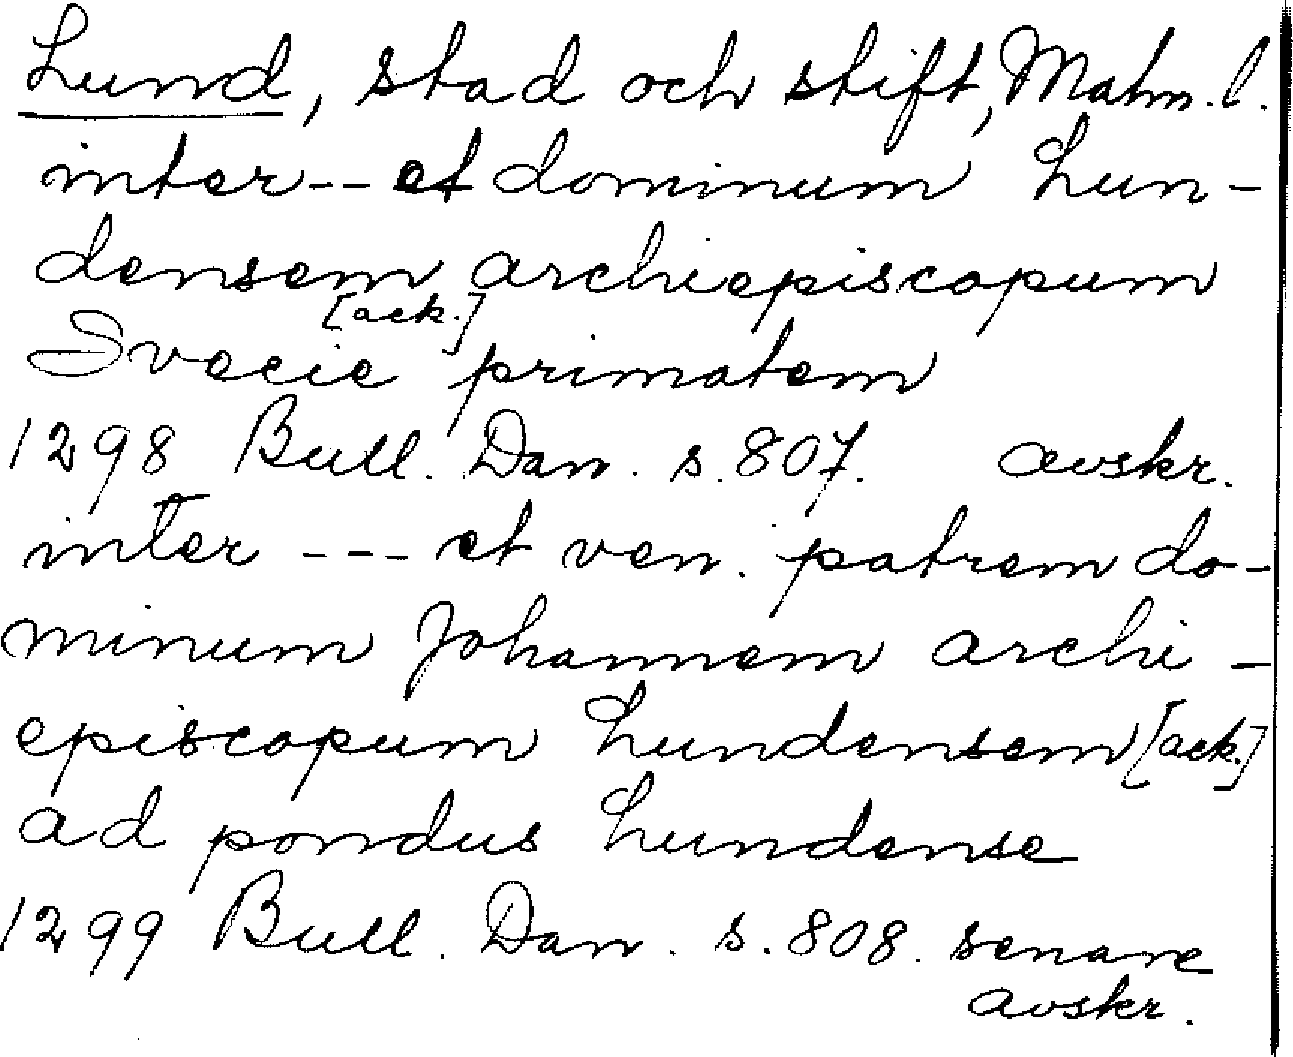 Lund, stad och stift, Malm. l.
inter -- et dominum Lun-
densem archiepiscopum
[ack.]
Svecie primatem
1298 Bull. Dan. s. 807. avskr.
inter --- et ven. patrem do-
minum Johannem archi-
episcopum Lundensem [ack.]
ad pondus Lundense
1299 Bull. Dan. s. 808. senare
avskr.